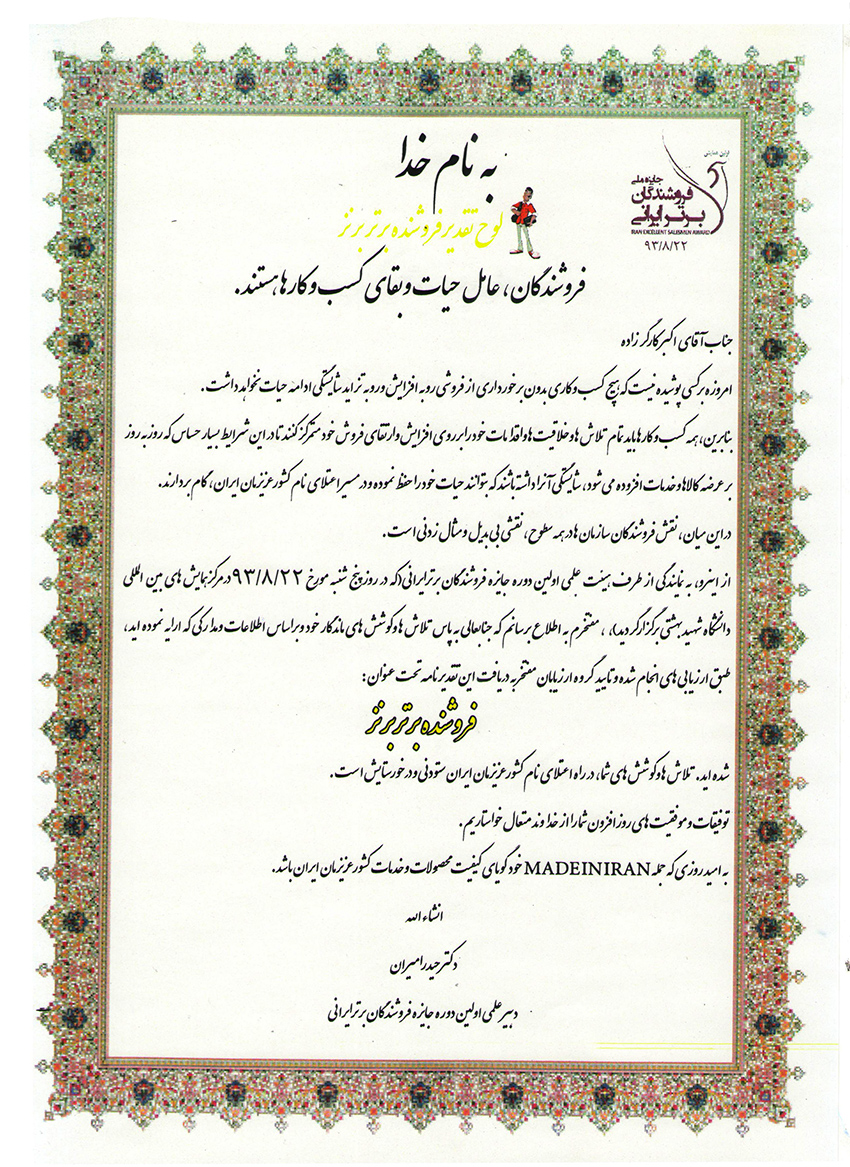 به نام خدا
اولین همایش
جایزه ملی
فروشندگان
برتر ایرانی
IRAN EXCELLENT SALESMEN AWARD
۹۳/۸/۲۲
لوح تقدیر فروشنده برتر برنز
فروشندگان، عامل حیات و بقای کسب و کارها هستند.
جناب آقای اکبر کارگر زاده
امروزه بر کسی پوشیده نیست که هیچ کسب و کاری بدون برخورداری از فروشی رو به افزایش و رو به تزاید شایستگی ادامه حیات نخواهد داشت.
بنابرین، همه کسب و کارها باید تمام تلاش ها و خلاقیت ها و اقدامات خود را بر روی افزایش و ارتقای فروش خود متمرکز کنند تا در این شرایط بسیار حساس که روز به روز
بر عرضه کالاها و خدمات افزوده می شود، شایستگی آنرا داشته باشند که بتوانند حیات خود را حفظ نموده و در مسیر اعتلای نام کشور عزیزمان ایران، گام بردارند.
در این میان، نقش فروشندگان سازمان ها در همه سطوح، نقشی بی بدیل و مثال زدنی است.
از اینرو، به نمایندگی از طرف هیئت علمی اولین دوره جایزه فروشندگان برتر ایرانی(که در روز پنج شنبه مورخ ۹۳/۸/۲۲ در مرکز همایش های بین المللی
دانشگاه شهید بهشتی برگزار گردید)، ، مفتخرم به اطلاع برسانم که جنابعالی به پاس تلاش ها و کوشش های ماندگار خود و براساس اطلاعات و مدارکی که ارایه نموده اید،
طبق ارزیابی های انجام شده و تایید گروه ارزیابان مفتخر به دریافت این تقدیرنامه تحت عنوان:
فروشنده برتر برنز
شده اید. تلاش ها و کوشش های شما، در راه اعتلای نام کشور عزیزمان ایران ستودنی و درخور ستایش است.
توفیقات و موفقیت های روز افزون شما را از خداوند متعال خواستاریم.
به امید روزی که جمله MADEINIRAN خود گویای کیفیت محصولات و خدمات کشور عزیزمان ایران باشد.
انشاء الله
دکتر حیدر امیران
دبیر علمی اولین دوره جایزه فروشندگان برتر ایرانی